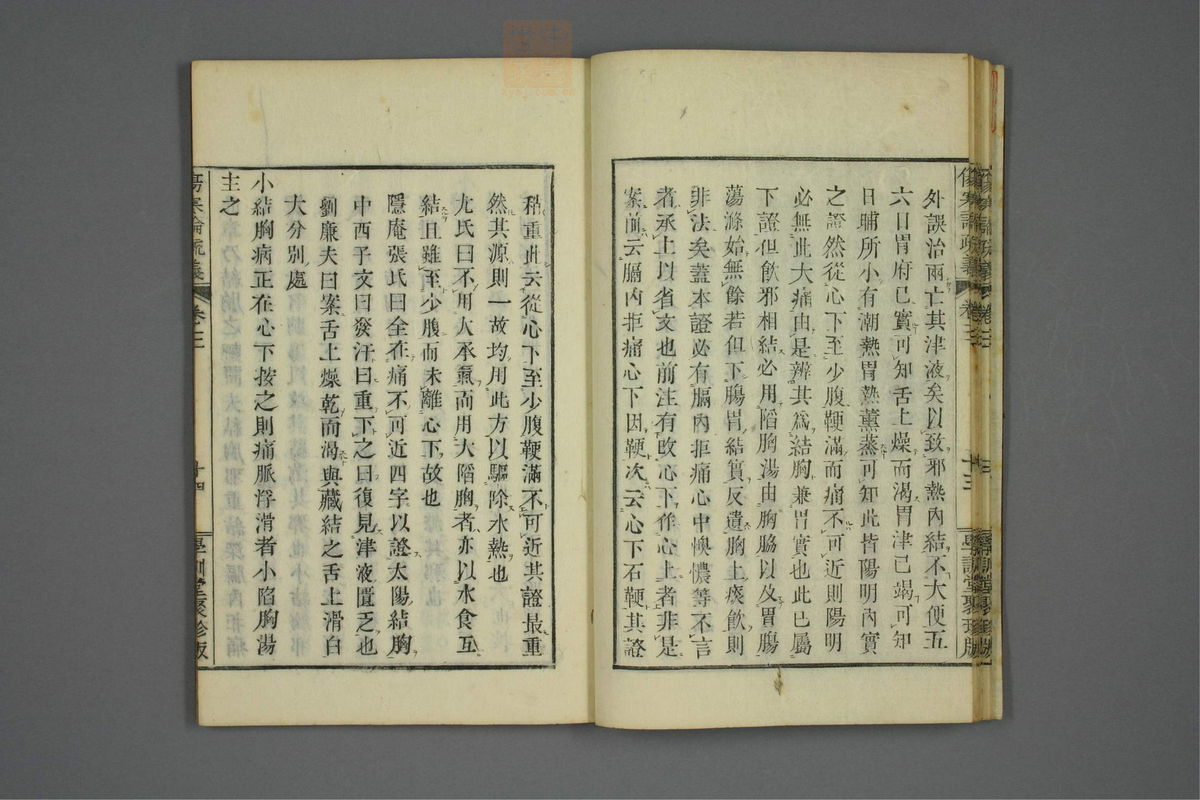 外誤治兩亡其津液矣以致邪熱內結不大便五
六日胃府已實可知舌上燥而渴胃津已竭可知
日晡所小有潮熱胃熱薰蒸可知此皆陽明內實
之證然從心下至少腹鞕滿而痛不可近則陽明
必無此大痛由是辨其爲結胸兼胃實也此已屬
下證但飲邪相結必用陷胸湯由胸脇以及胃腸
蕩滌始無餘若但下腸胃結實反遺胸上痰飲則
非法矣蓋本證必有膈內拒痛心中懊憹等不言
者承上以省文也前注有改心下作心上者非是
案前云膈內拒痛心下因鞕次云心下石鞕其證
稍重此云從心下至少腹鞕滿不可近其證最重
然其源則一故均用此方以驅除水熱也
尤氏曰不用大承氣而用大陷胸者亦以水食互
結且雖至少腹而未離心下故也
隱庵張氏曰全在痛不可近四字以證太陽結胸
中西子文曰發汗曰重下之曰復見津液匱乏也
劉廉夫曰案舌上燥乾而渴與藏結之舌上滑白
大分別處
小結胸病正在心下按之則痛脈浮滑者小陷胸湯
主之
傷寒論疏義 卷三 十四 學訓堂聚珍版